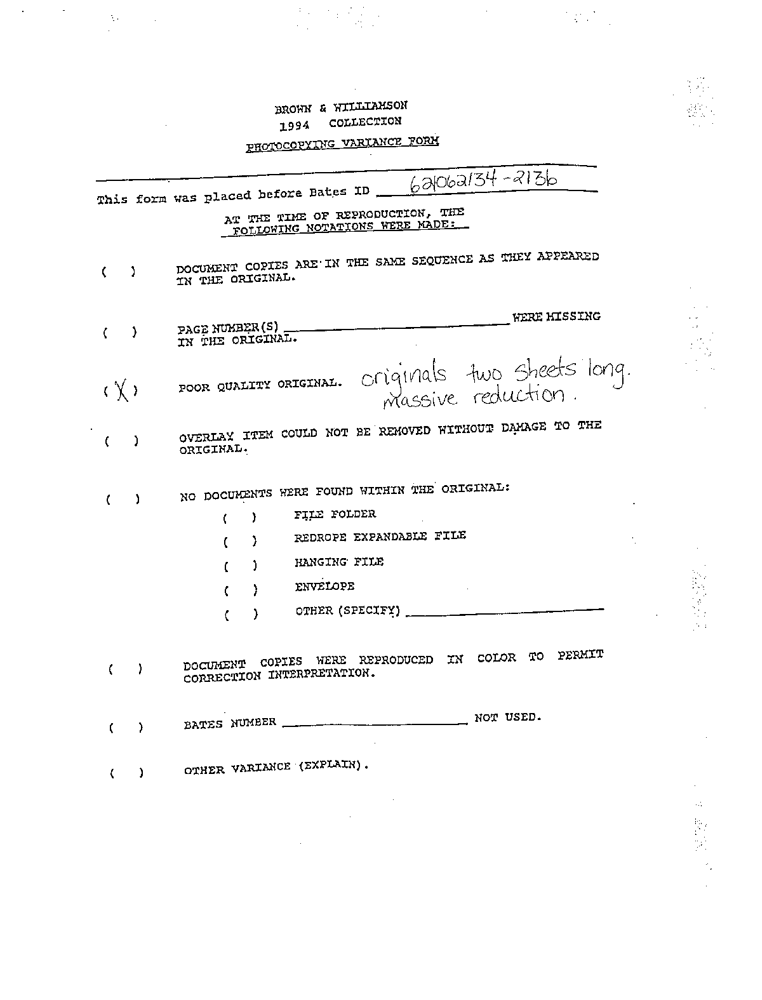 BROWN & WILLIAMSON
1994 COLLECTION
PHOTOCOPYING VARIANCE FORM
This form was placed before Bates ID 621062134-2136
AT THE TIME OF REPRODUCTION, THE
FOLLOWING NOTATIONS WERE MADE:
( ) DOCUMENT COPIES ARE IN THE SAME SEQUENCE AS THEY APPEARED
IN THE ORIGINAL.
( ) PAGE NUMBER(S) ____ WERE MISSING
IN THE ORIGINAL.
(X) POOR QUALITY ORIGINAL. originals two sheets long.
Massive reduction.
( ) OVERLAY ITEM COULD NOT BE REMOVED WITHOUT DAMAGE TO THE
ORIGINAL.
( ) NO DOCUMENTS WERE FOUND WITHIN THE ORIGINAL:
( ) FILE FOLDER
( ) REDROPE EXPANDABLE FILE
( ) HANGING FILE
( ) ENVELOPE
( ) OTHER (SPECIFY) ____
( ) DOCUMENT COPIES WERE REPRODUCED IN COLOR TO PERMIT
CORRECTION INTERPRETATION.
( ) BATES NUMBER ____ NOT USED.
( ) OTHER VARIANCE (EXPLAIN).